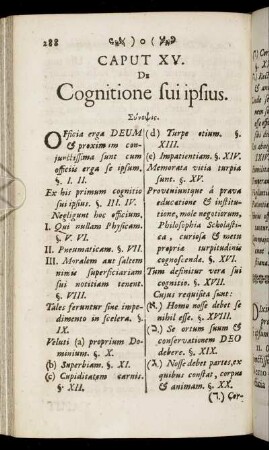 288
) o (
CAPUT XV.
De
Cognitione sui ipsius.
Σύνοψις.
OFficia erga DEUM
& proximum con-
junctissima sunt cum
officiis erga se ipsum,
§. I. II.
Ex his primum cognitio
sui ipsius. §. III. IV.
Negligunt hoc officium,
I. Qui nullam Physicam.
§. V. VI.
II. Pneumaticam. §. VII.
III. Moralem aut saltem
nimis superficiariam
sui notitiam tenent.
§. VIII.
Tales feruntur sine impe-
dimento in scelera. §.
IX.
Veluti (a) proprium Do-
minium. §. X.
(b) Superbiam. §. XI.
(c) Cupiditatem carnis.
§. XII.
(d) Turpe otium. §.
XIII.
(e) Impatientiam. §. XIV.
Memorata vitia turpia
sunt. §. XV.
Proveniuntque á prava
educatione & institu-
tione, mole negotiorum,
Philosophia Scholasti-
ca, curiosa & metu
propriæ turpitudinis
cognoscenda. §. XVI.
Tum definitur vera sui
cognitio. §. XVII.
Cujus requisita sunt:
(א.) Homo nosse debet se
nihil esse. §. XVIII.
(ב.) Se ortum suum &
conservationem DEO
debere. §. XIX.
(ג.) Nosse debet partes, ex
quibus constat, corpus
& animam. §. XX.
(ד.) Cor-